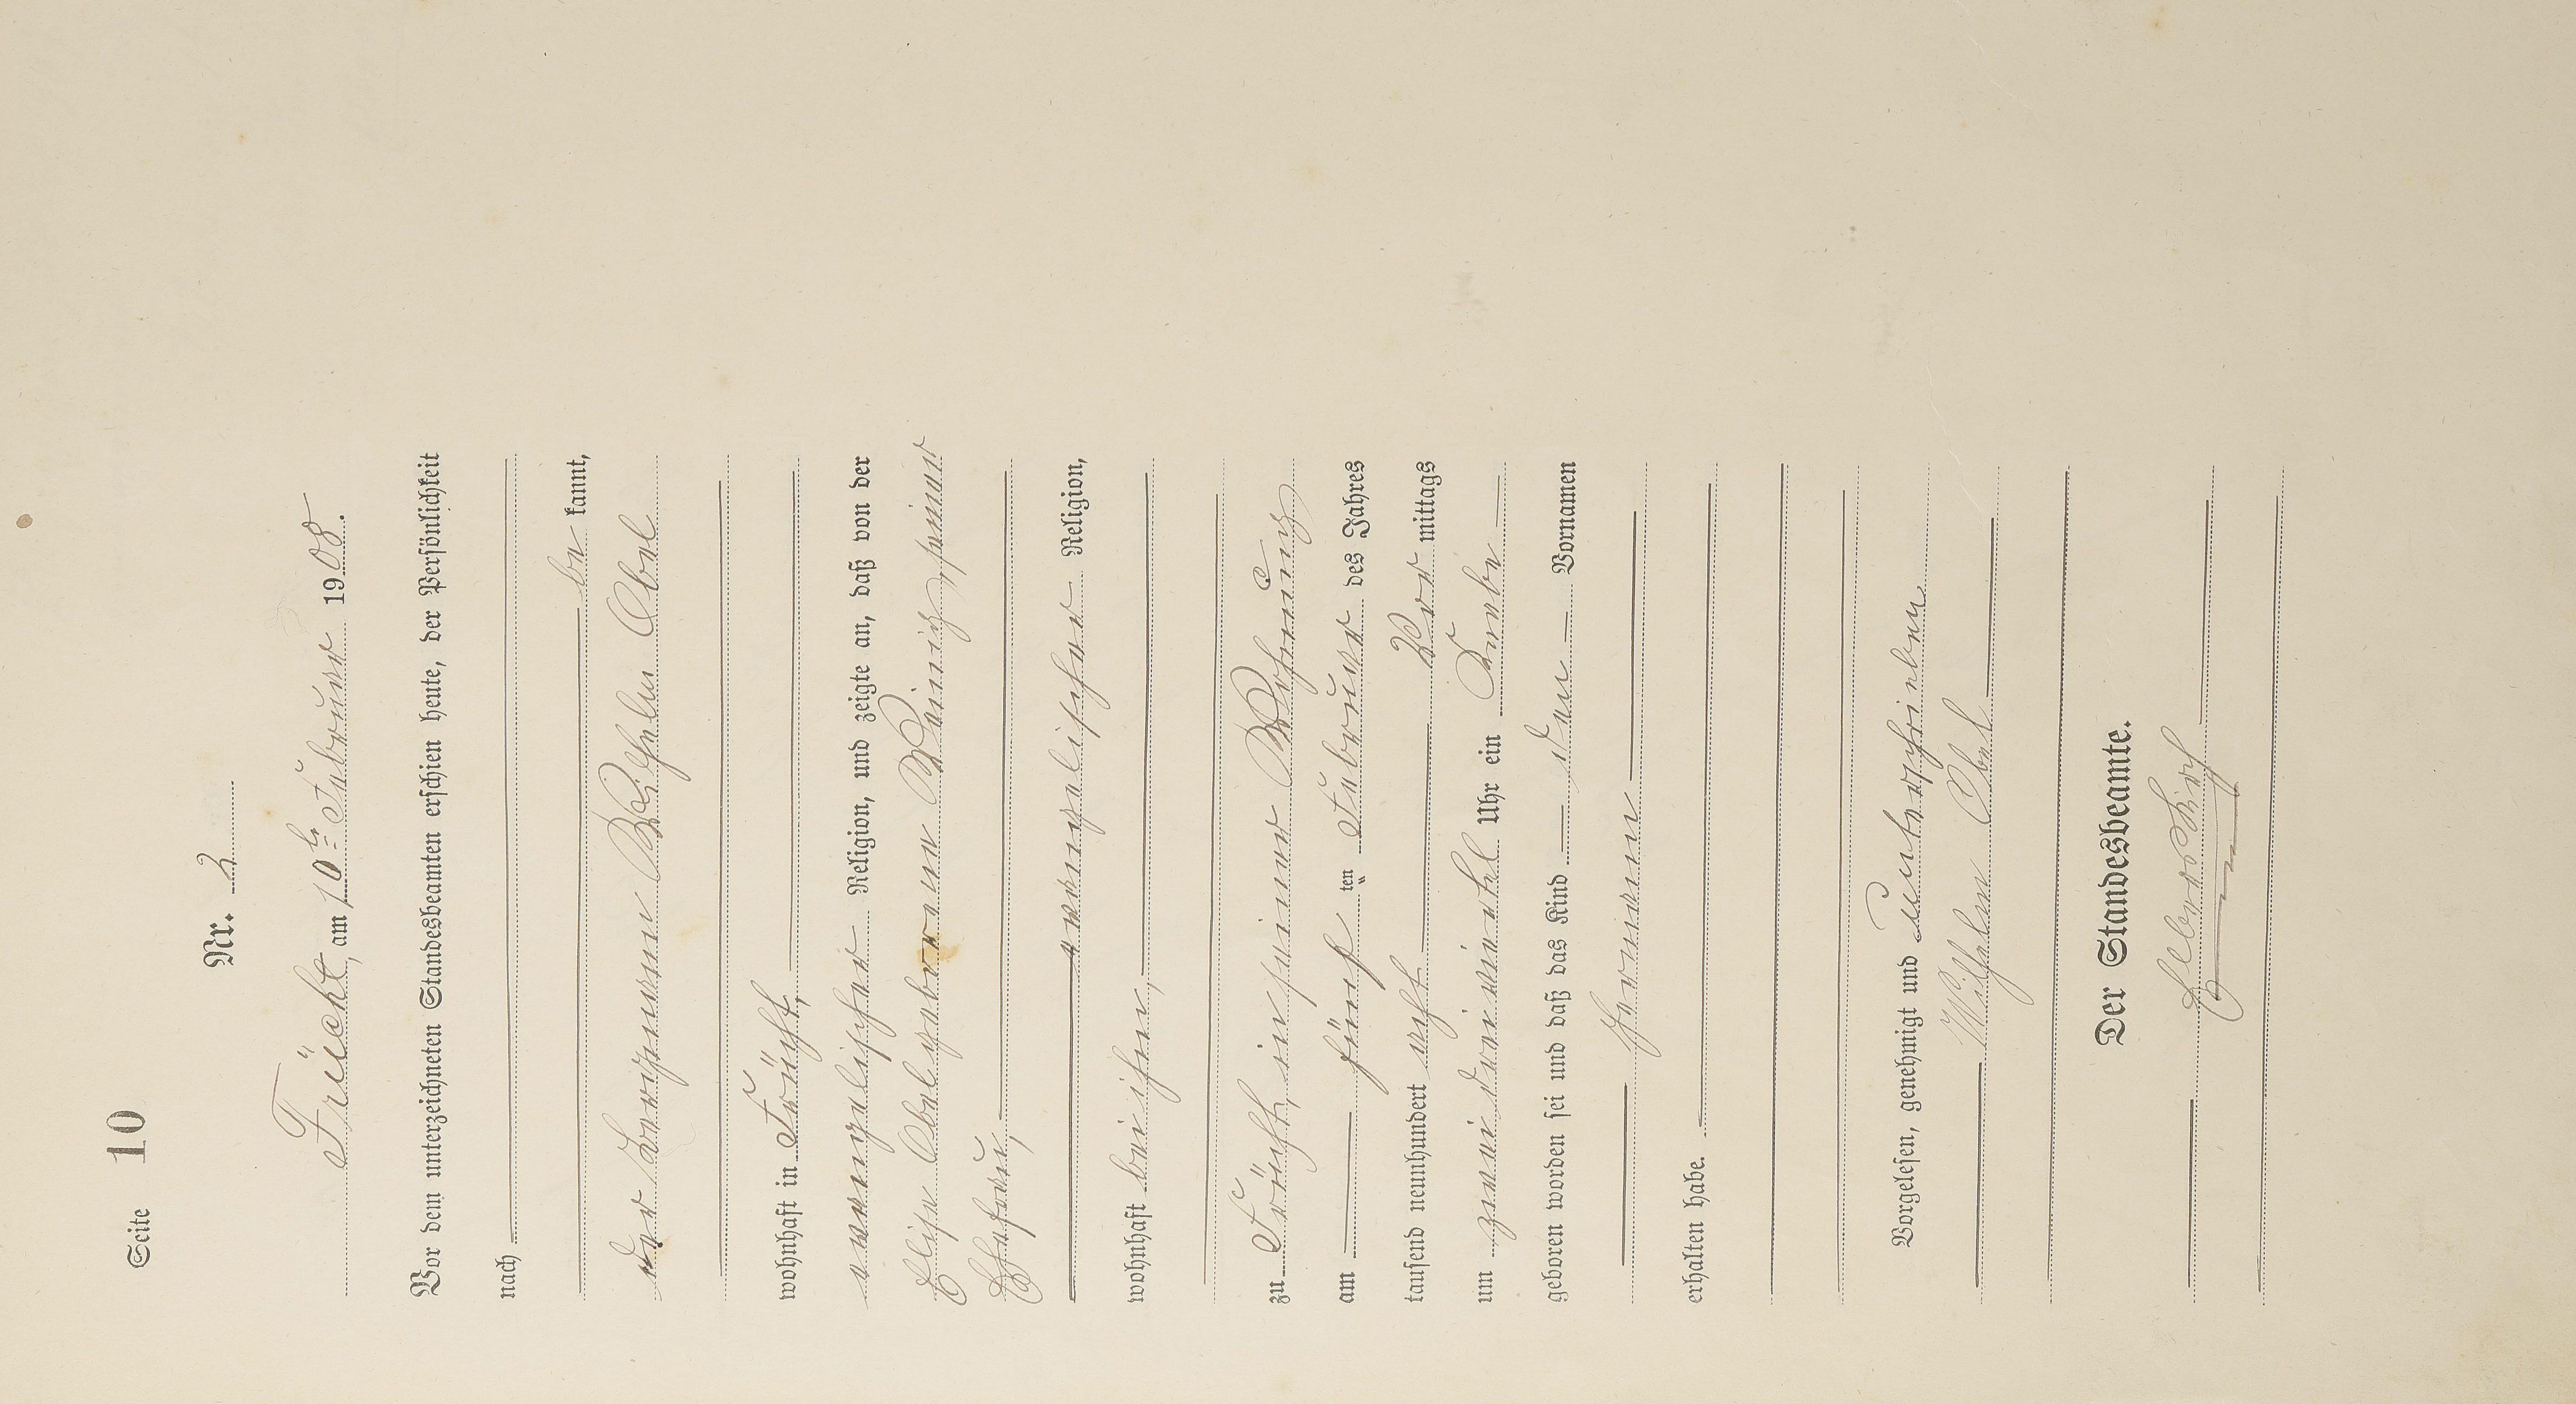 Seite 10
Nr. 2
Frücht, am 10ten Februar 1908.
Vor dem unterzeichneten Standesbeamten erschien heute, der Persönlichkeit
nach
be kannt,
der Bergmann Wilhelm Obel
wohnhaft in Frücht,
evangelischer Religion, und zeigte an, daß von der
Elise Obel geborene Kleinig, seiner
Ehefrau,
evangelischer Religion,
wohnhaft bei ihm,
zu Frücht, in seiner Wohnung
am fünf ten Februar des Jahres
tausend neunhundert acht Vor mittags
um zwei drei viertel Uhr ein Knabe
geboren worden sei und daß das Kind den Vornamen
Hermann
erhalten habe.
Vorgelesen, genehmigt und unterschrieben
Wilhelm Obel
Der Standesbeamte.